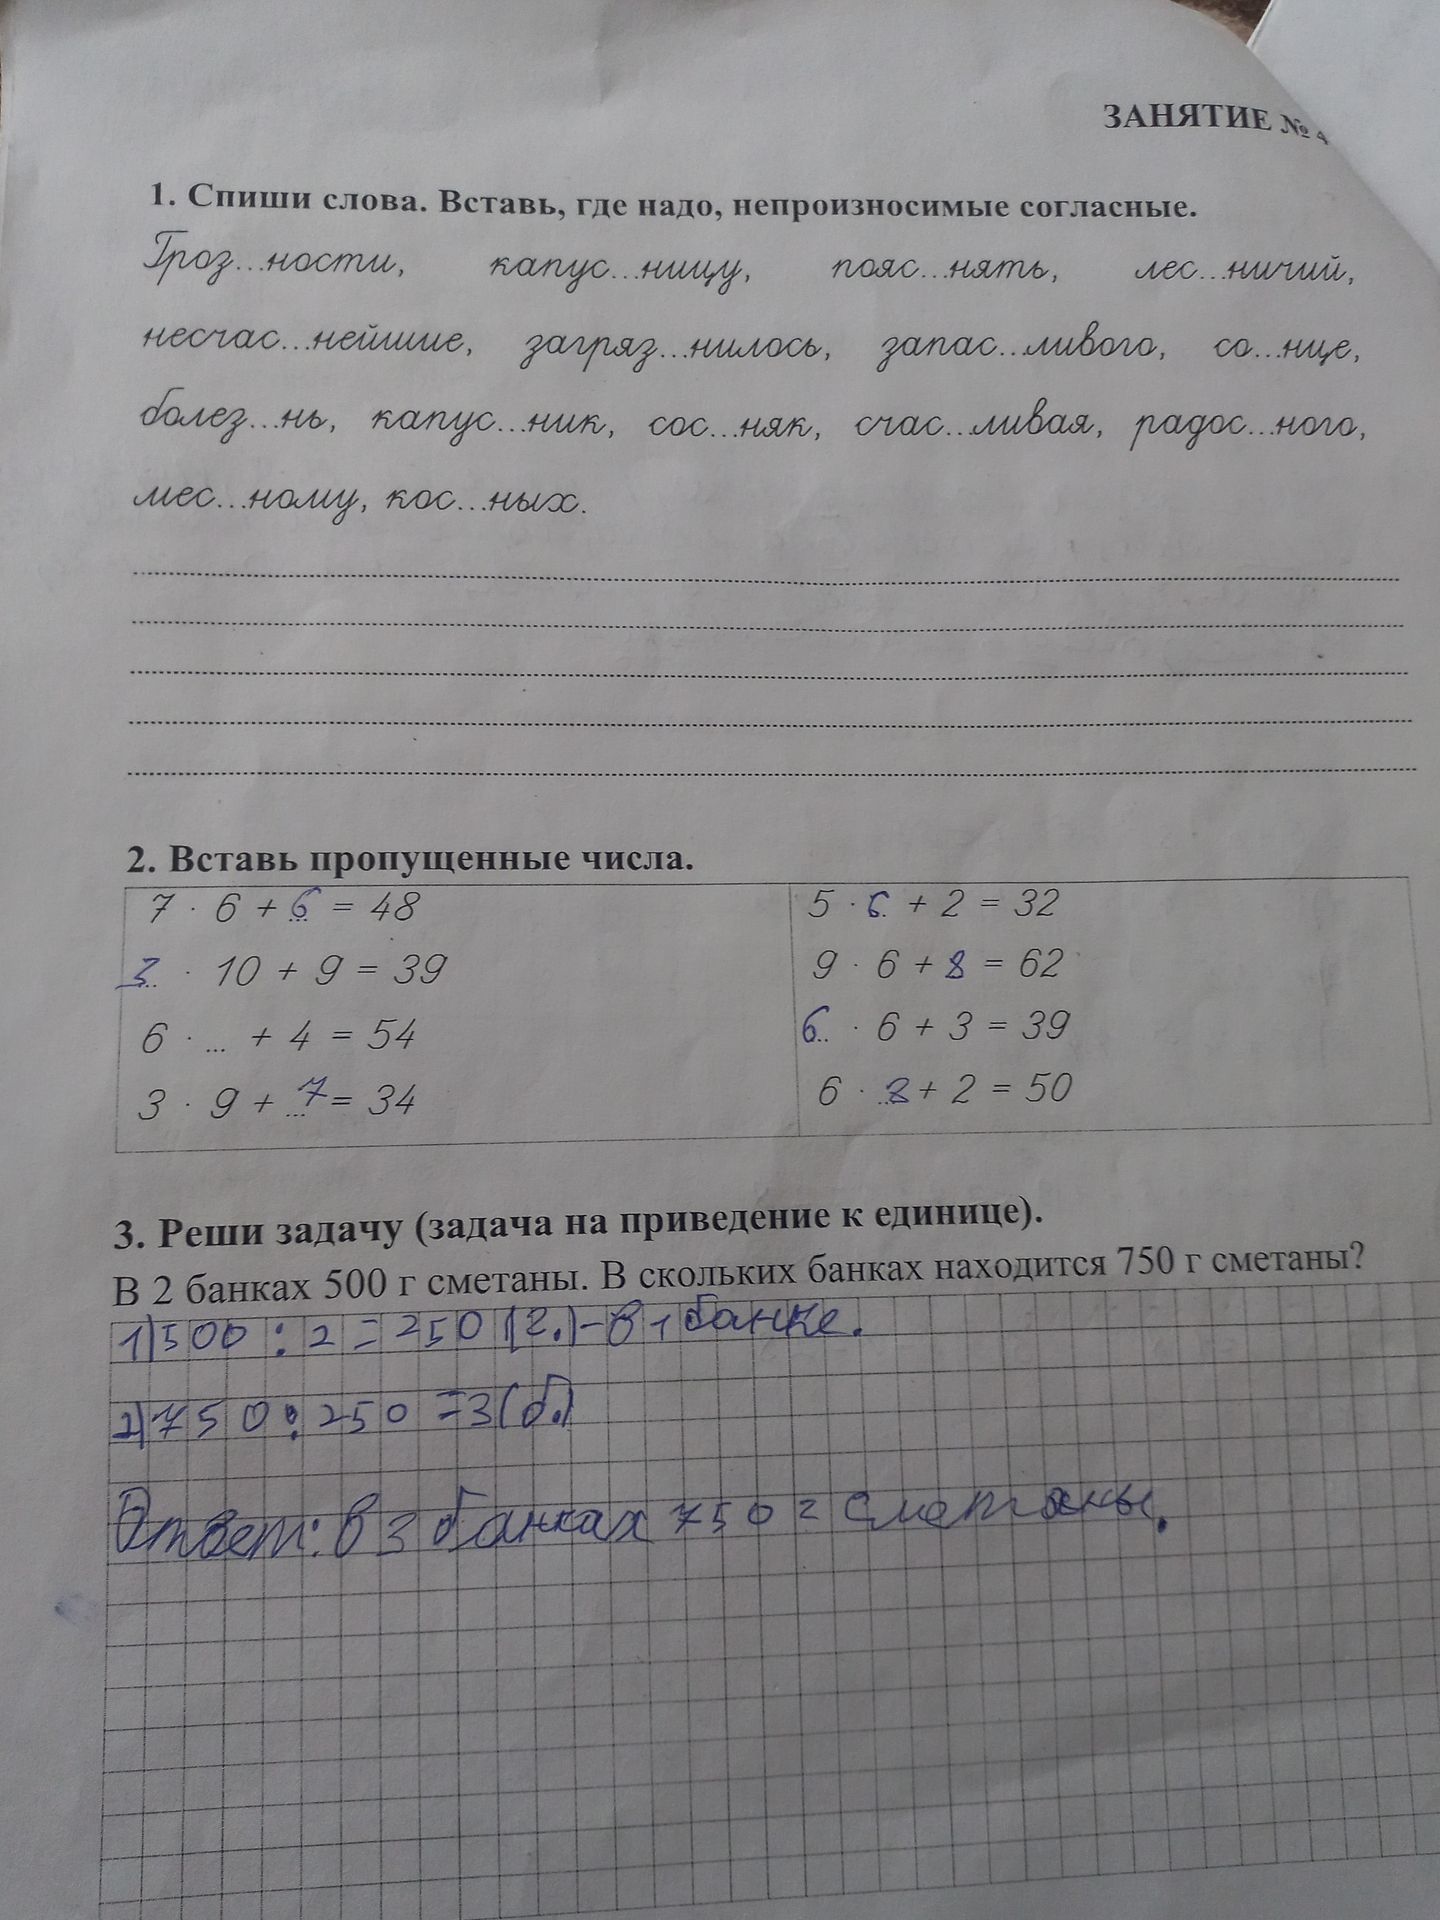 ЗАНЯТИЕ № 4
1. Спиши слова. Вставь, где надо, непроизносимые согласные.
Гроз...ности, капус...ницу, пояс...нять, лес...ничий,
несчас...нейшие, загряз...нилось, запас...ливого, со...нце,
болез...нь, капус...ник, сос...няк, счас...ливая, радос...ного,
мес...ному, кос...ных.
2. Вставь пропущенные числа.
7 · 6 + 6 = 48
3 · 10 + 9 = 39
6 · ... + 4 = 54
3 · 9 + 7 = 34
5 · 6 + 2 = 32
9 · 6 + 8 = 62
6 · 6 + 3 = 39
6 · 8 + 2 = 50
3. Реши задачу (задача на приведение к единице).
В 2 банках 500 г сметаны. В скольких банках находится 750 г сметаны?
1) 500 : 2 = 250 (г.) - в 1 банке.
2) 750 : 250 = 3 (б.)
Ответ: в 3 банках 750 г сметаны.